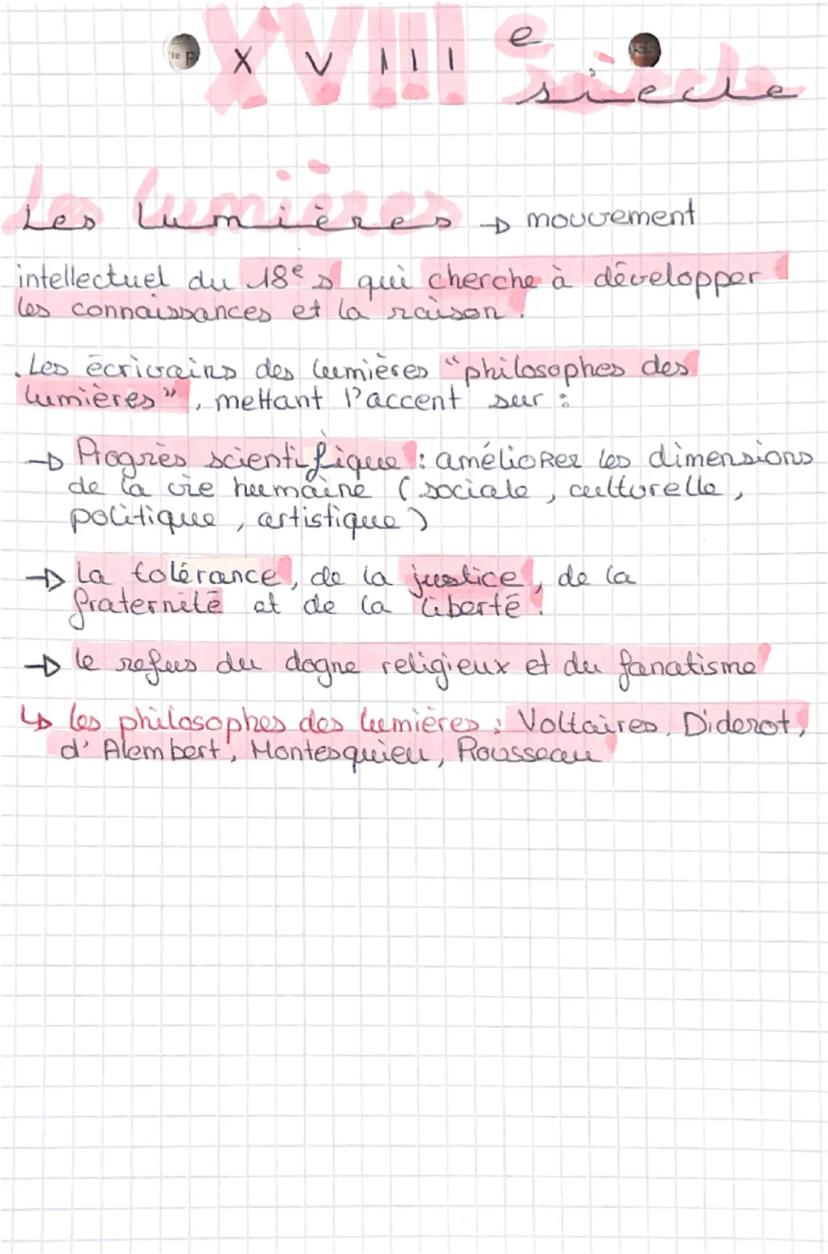 XVIIIe siècle
Les lumières → mouvement
intellectuel du 18e s qui cherche à développer
les connaissances et la raison.
. Les écrivains des lumières "philosophes des
lumières", mettant l'accent sur :
→ Progrès scientifique : améliorer les dimensions
de la vie humaine (sociale, culturelle,
politique, artistique)
→ La tolérance, de la justice, de la
fraternité et de la liberté.
→ le refus du dogne religieux et du fanatisme
↳ les philosophes des lumières : Voltaires, Diderot,
d'Alembert, Montesquieu, Rousseau